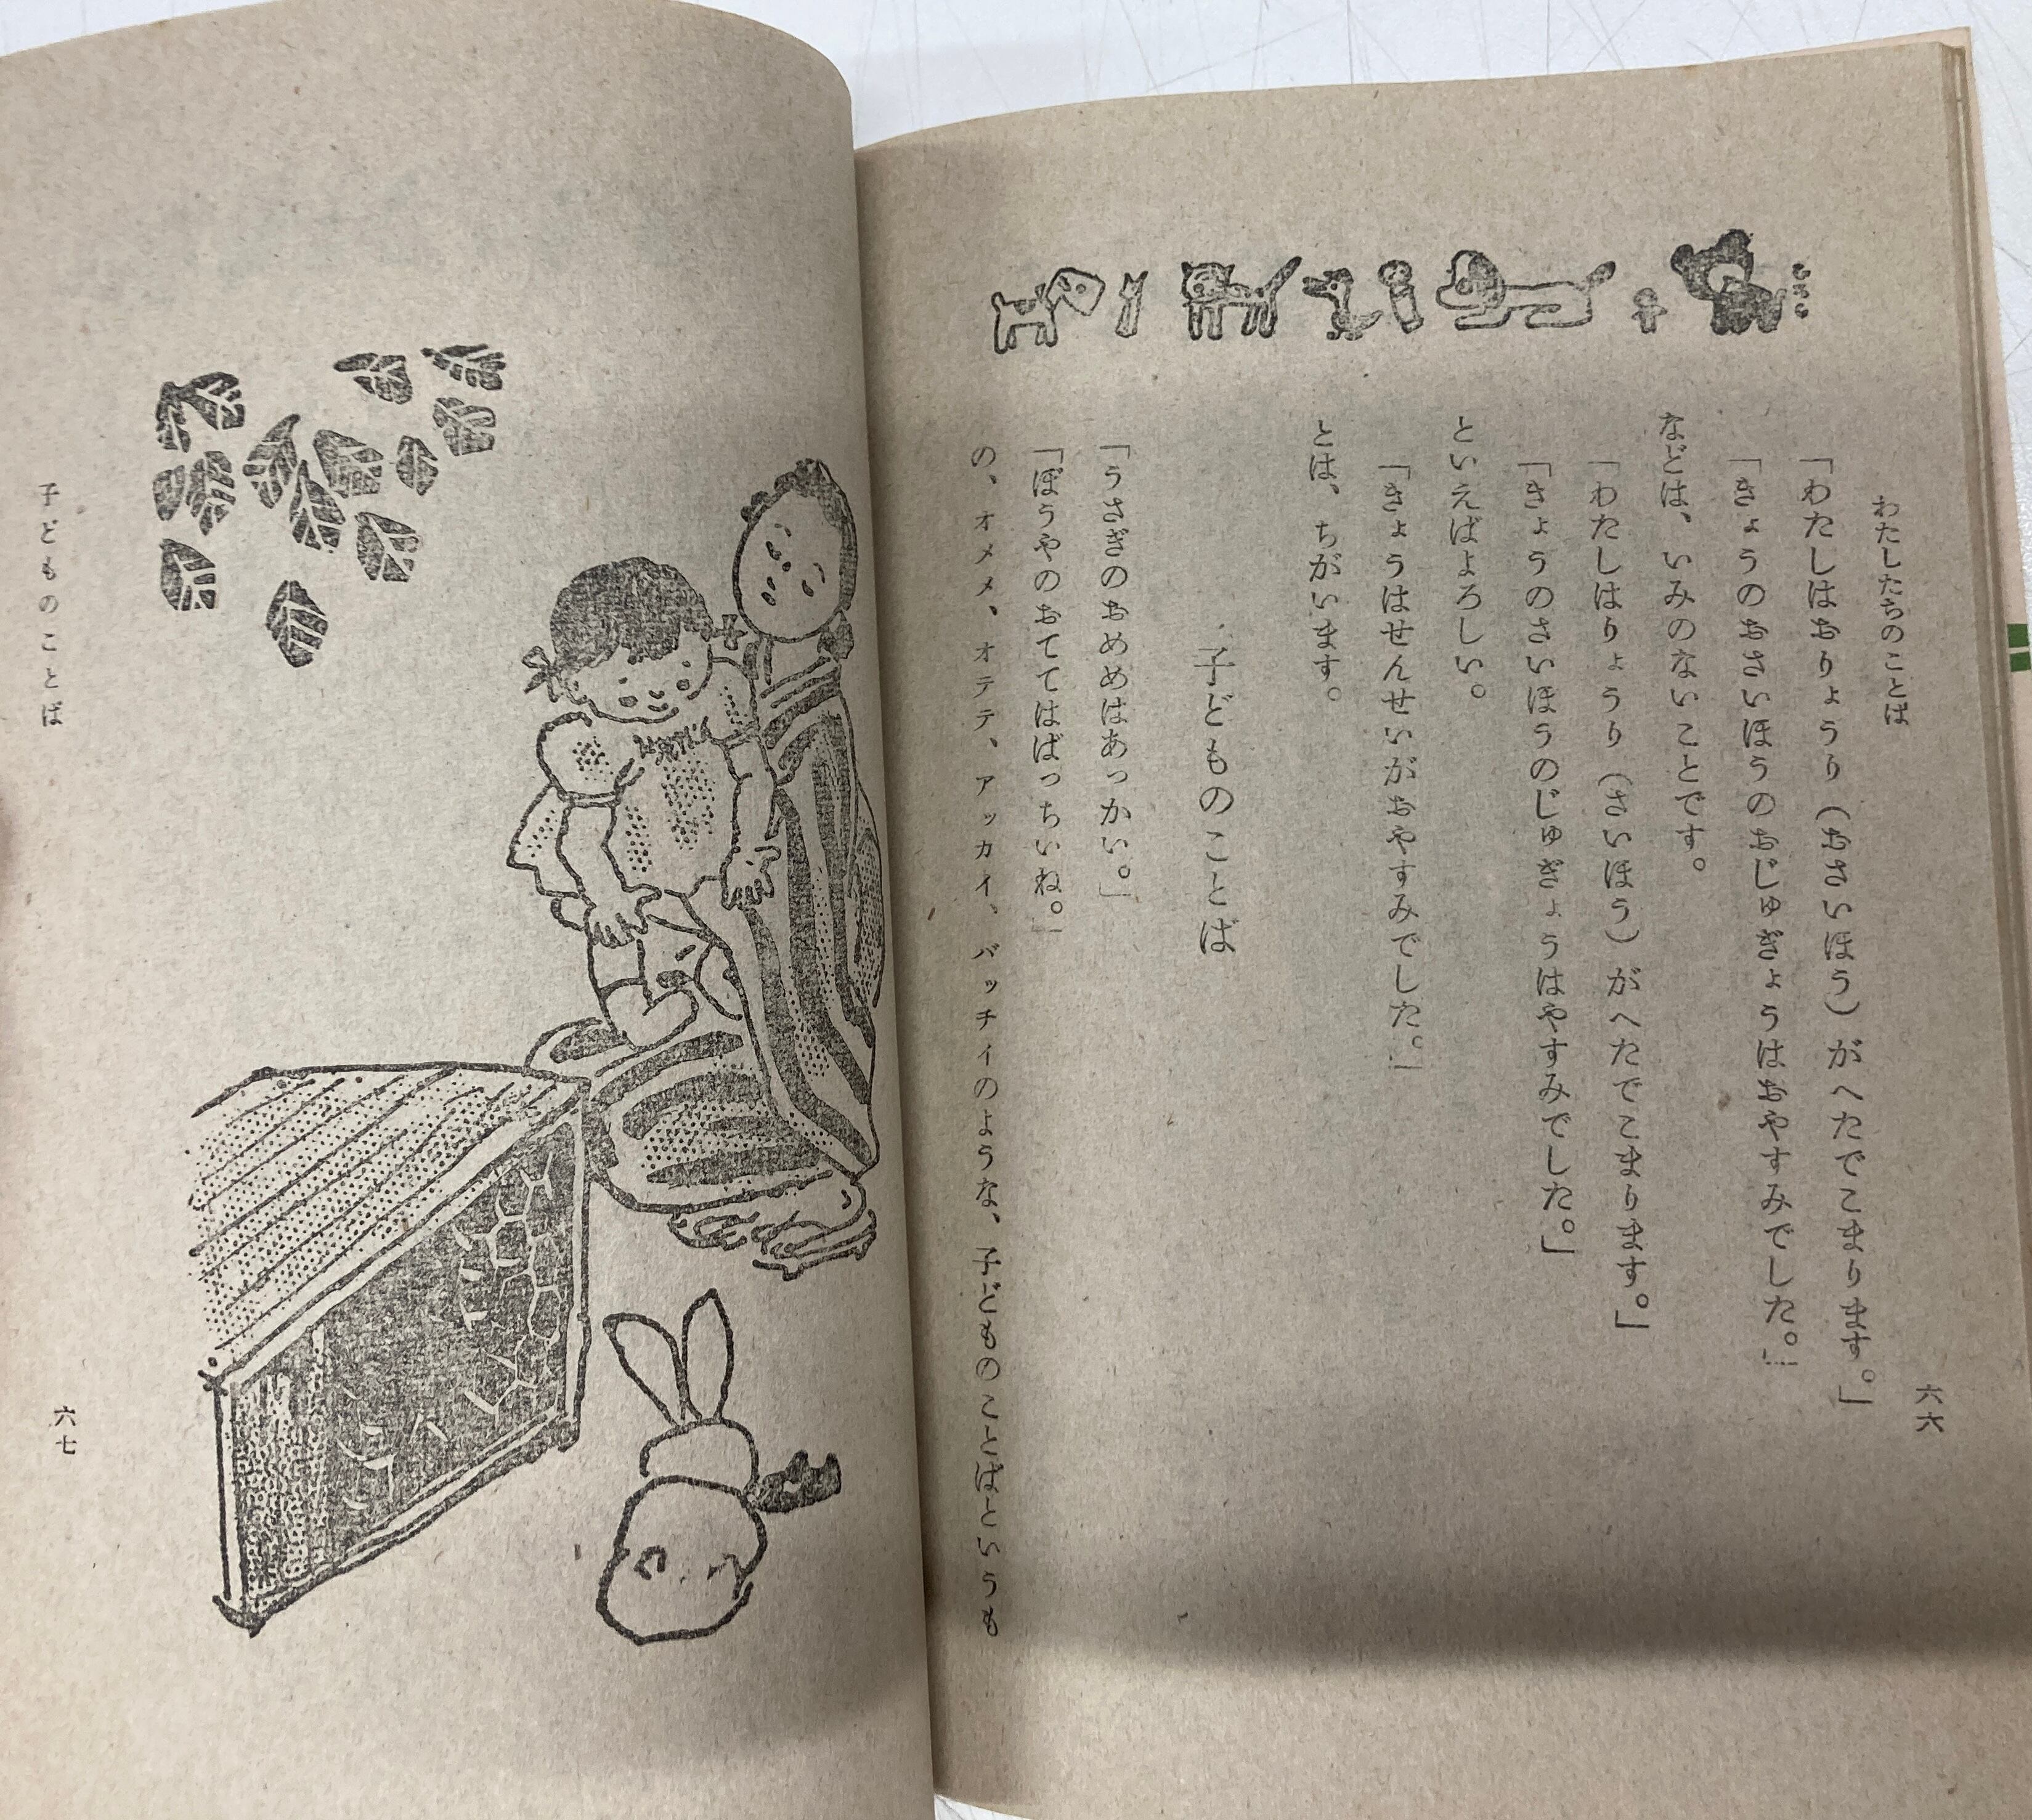 わたしたちのことば
六六
「わたしはおりょうり（おさいほう）がへたでこまります。」
「きょうのおさいほうのおじゅぎょうはおやすみでした。」
などは、いみのないことです。
「わたしはりょうり（さいほう）がへたでこまります。」
「きょうのさいほうのじゅぎょうはやすみでした。」
といえばよろしい。
「きょうはせんせいがおやすみでした。」
とは、ちがいます。
子どものことば
「うさぎのおめめはあっかい。」
「ぼうやのおててはばっちいね。」
の、オメメ、オテテ、アッカイ、バッチイのような、子どものことばというも
子どものことば
六七